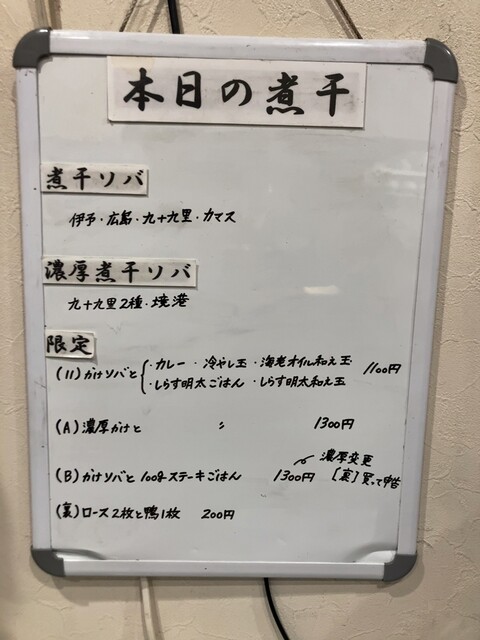 本日の煮干
煮干ソバ
伊予・広島・九十九里・カマス
濃厚煮干ソバ
九十九里2種・境港
限定
(11)かけソバと ・カレー ・冷やし玉 ・海老オイル和え玉 1100円
・しらす明太ごはん ・しらす明太和え玉
(A)濃厚かけと 〃 1300円
濃厚変更
(B)かけソバと 100gステーキごはん 1300円 [裏]買って申告
(裏)ロース2枚と鴨1枚 200円